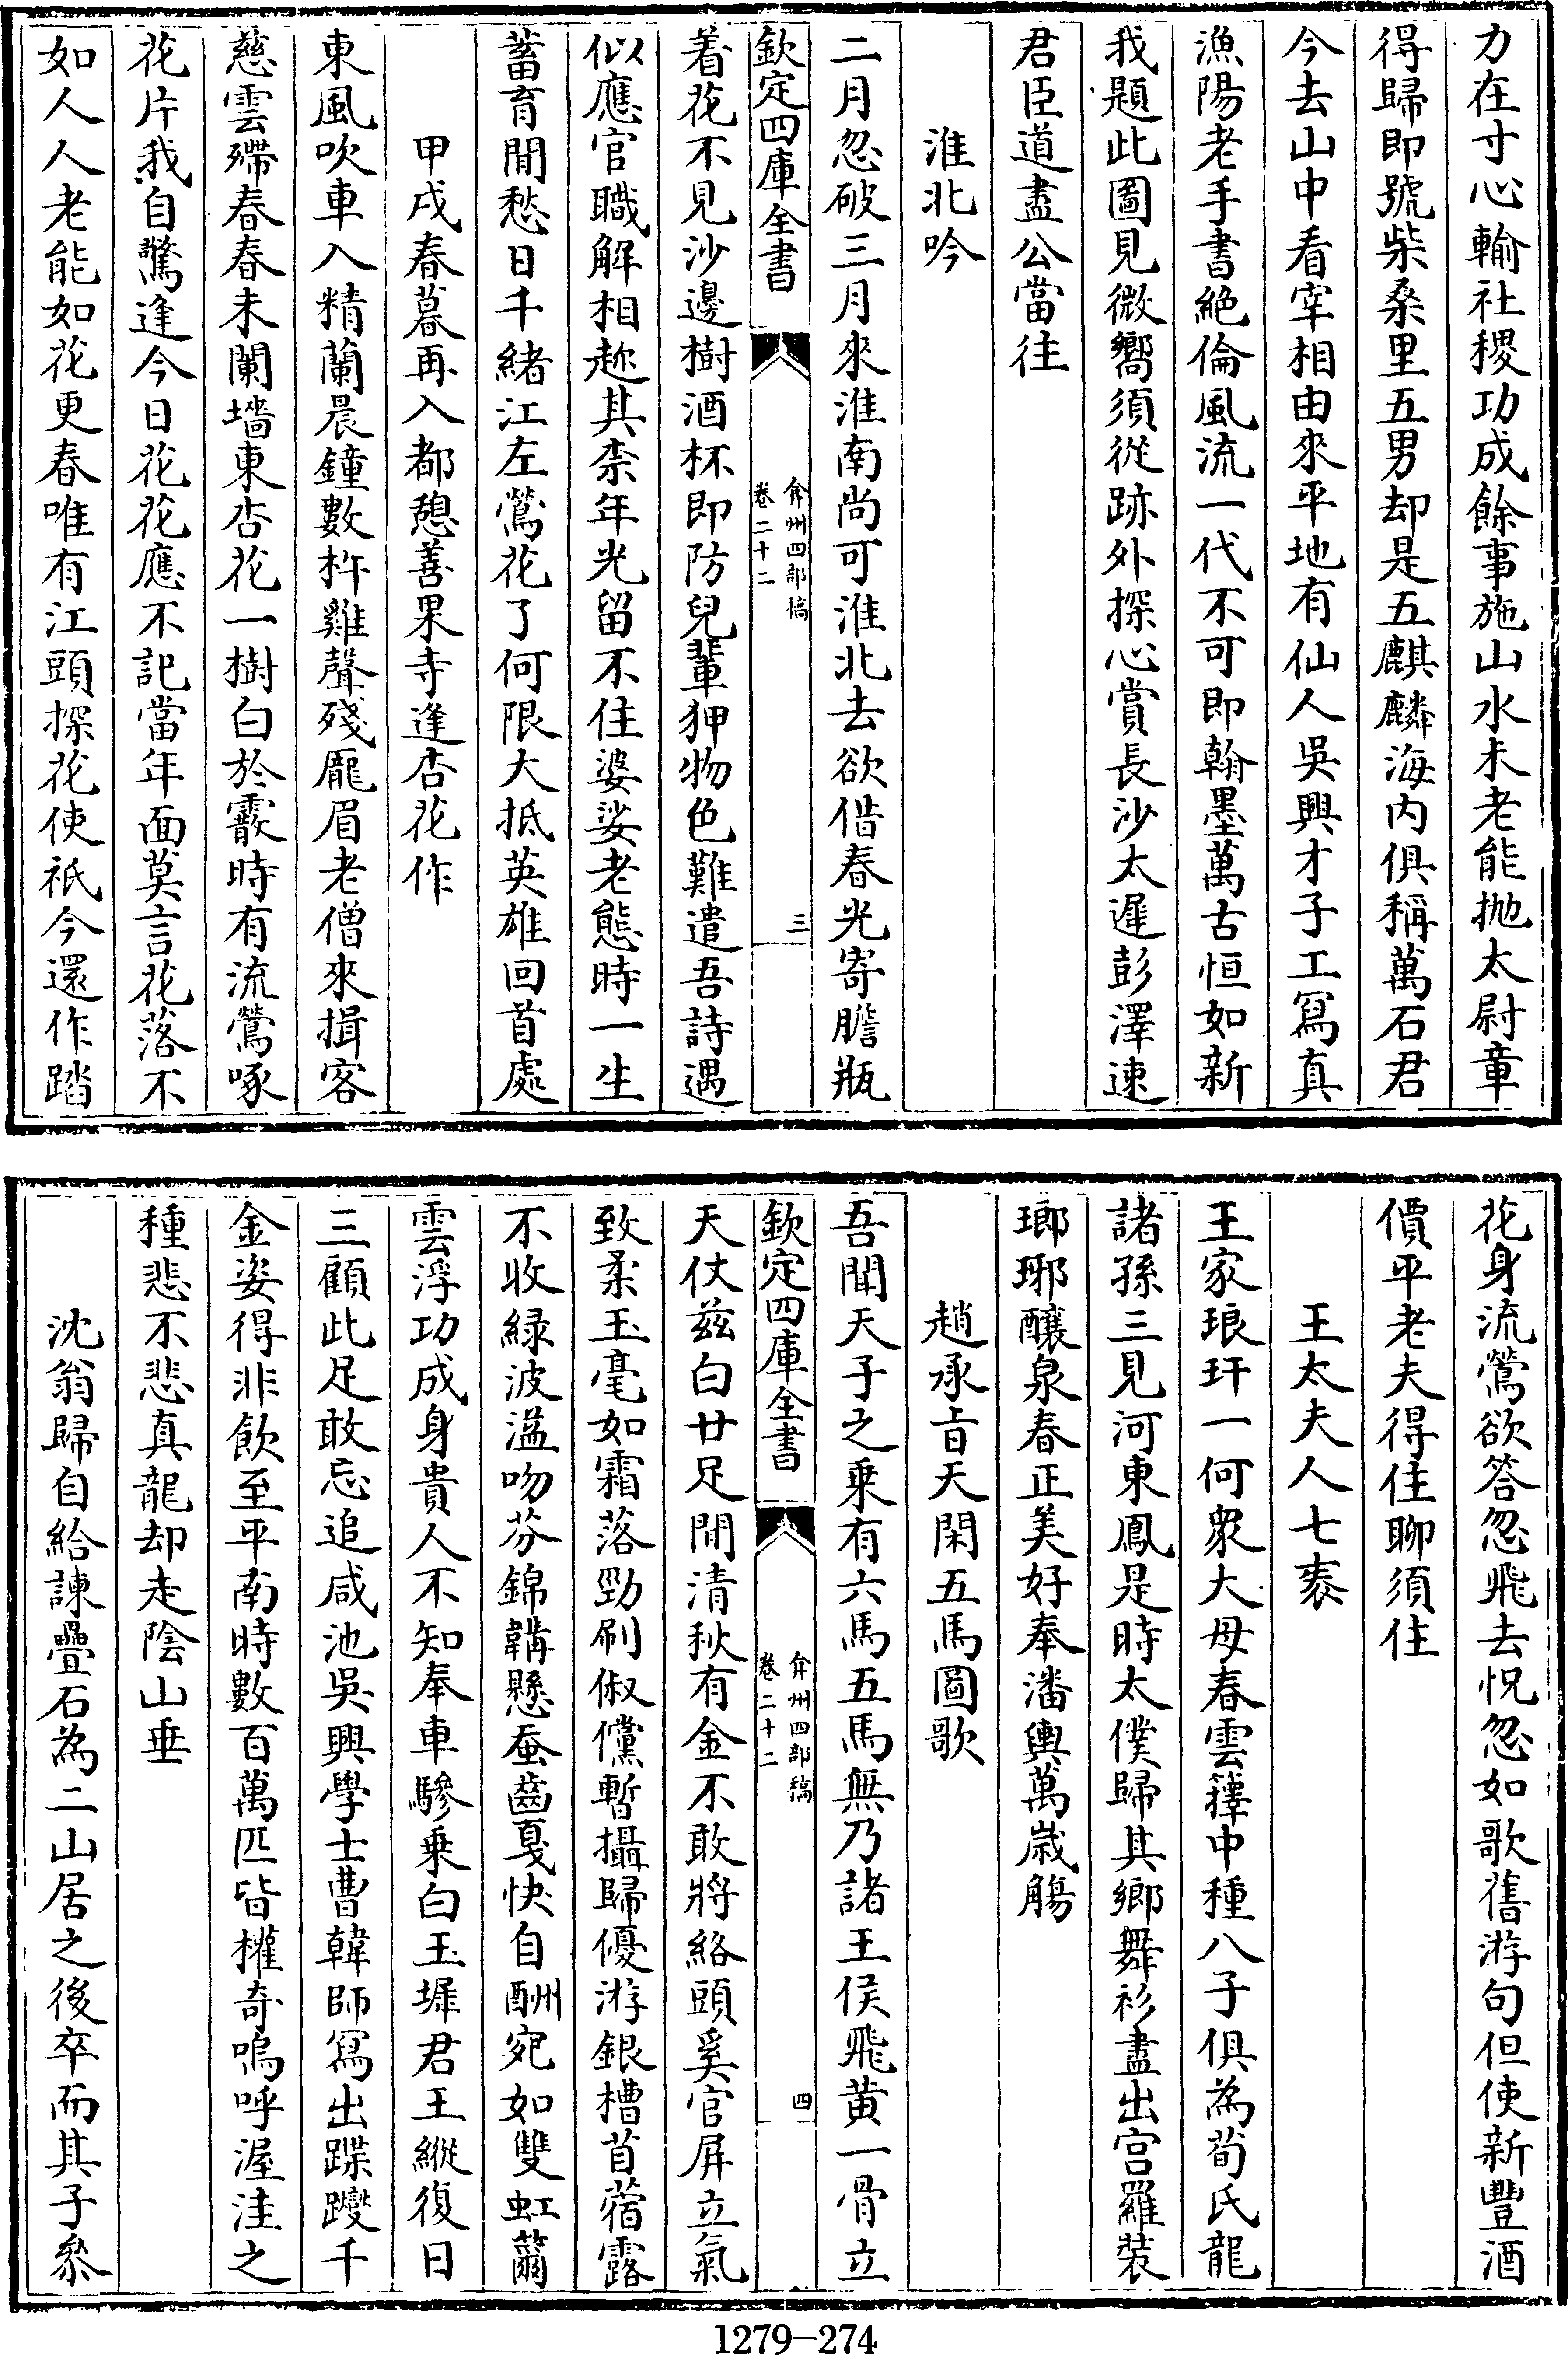 力在寸心輸社稷功成餘事施山水未老能拋太尉章
得歸即號柴桑里五男却是五麒麟海内俱稱萬石君
今去山中看宰相由來平地有仙人吳興才子工寫真
漁陽老手書絕倫風流一代不可即翰墨萬古恒如新
我題此圖見微嚮須從跡外探心賞長沙太遲彭澤速
君臣道盡公當往
淮北吟
二月忽破三月來淮南尚可淮北去欲借春光寄膽瓶
欽定四庫全書
弇州四部稿
卷二十二
三
着花不見沙邊樹酒杯即防兒輩狎物色難遣吾詩遇
似應官職解相趂其柰年光留不住婆娑老態時一生
蓄育閒愁日千緒江左鶯花了何限大抵英雄回首處
甲戌春暮再入都憩善果寺逢杏花作
東風吹車入精蘭晨鐘數杵雞聲殘龎眉老僧來揖客
慈雲殢春春未闌墻東杏花一樹白於霰時有流鶯啄
花片我自驚逢今日花花應不記當年面莫言花落不
如人人老能如花更春唯有江頭探花使祇今還作踏
花身流鶯欲答忽飛去怳忽如歌舊游句但使新豐酒
價平老夫得住聊須住
王太夫人七袠
王家琅玕一何衆大母春雲籜中種八子俱為荀氏龍
諸孫三見河東鳳是時太僕歸其鄉舞衫盡出宫羅裝
瑯琊釀泉春正美好奉潘輿萬歲觴
趙承旨天閑五馬圖歌
吾聞天子之乗有六馬五馬無乃諸王侯飛黄一骨立
欽定四庫全書
弇州四部稿
卷二十二
四
天仗兹白廿足閒清秋有金不敢將絡頭奚官屏立氣
致柔玉毫如霜落勁刷俶儻暫攝歸優游銀槽苜蓿露
不收緑波溢吻芬錦韝懸蚕齒戛快自酬宛如雙虹籋
雲浮功成身貴人不知奉車驂乗白玉墀君王縱復日
三顧此足敢忘追咸池吳興學士曹韓師寫出蹀躞千
金姿得非飲至平南時數百萬匹皆權奇嗚呼渥洼之
種悲不悲真龍却走隂山垂
沈翁歸自給諫疊石為二山居之後卒而其子叅
1279—274